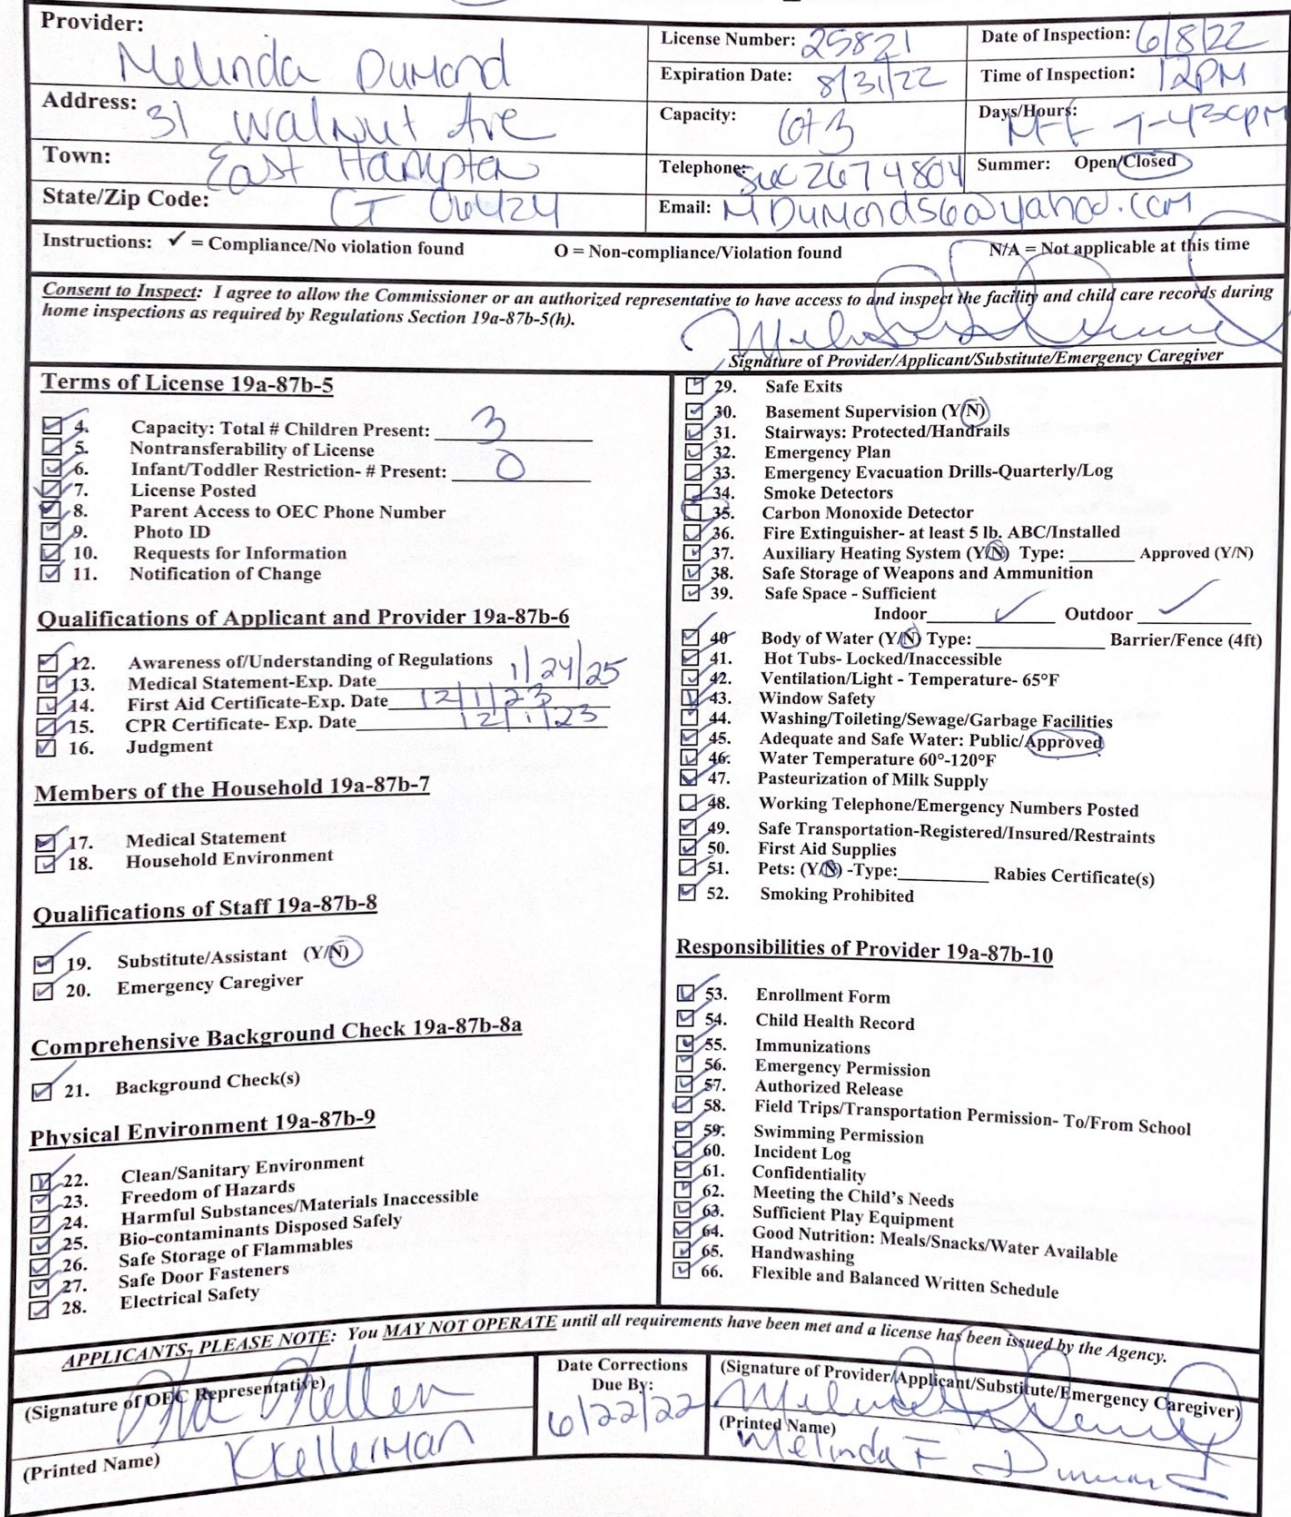 Provider: Melinda Dumond
License Number: 25821
Date of Inspection: 6/8/22
Expiration Date: 8/31/22
Time of Inspection: 12PM
Address: 31 Walnut Ave
Capacity: 6+3
Days/Hours: M-F 7-430pm
Town: East Hampton
Telephone: 267 4804
Summer: Open/Closed
State/Zip Code: CT 06424
Email: MDumond56@yahoo.com
Instructions: ✓ = Compliance/No violation found O = Non-compliance/Violation found N/A = Not applicable at this time
Consent to Inspect: I agree to allow the Commissioner or an authorized representative to have access to and inspect the facility and child care records during
home inspections as required by Regulations Section 19a-87b-5(h).
Signature of Provider/Applicant/Substitute/Emergency Caregiver
Terms of License 19a-87b-5
✓ 4. Capacity: Total # Children Present: 3
✓ 5. Nontransferability of License
✓ 6. Infant/Toddler Restriction- # Present: 0
✓ 7. License Posted
✓ 8. Parent Access to OEC Phone Number
✓ 9. Photo ID
✓ 10. Requests for Information
✓ 11. Notification of Change
Qualifications of Applicant and Provider 19a-87b-6
✓ 12. Awareness of/Understanding of Regulations
✓ 13. Medical Statement-Exp. Date 1/24/25
✓ 14. First Aid Certificate-Exp. Date 12/1/23
✓ 15. CPR Certificate- Exp. Date 12/1/23
✓ 16. Judgment
Members of the Household 19a-87b-7
✓ 17. Medical Statement
✓ 18. Household Environment
Qualifications of Staff 19a-87b-8
✓ 19. Substitute/Assistant (Y/N)
✓ 20. Emergency Caregiver
Comprehensive Background Check 19a-87b-8a
✓ 21. Background Check(s)
Physical Environment 19a-87b-9
✓ 22. Clean/Sanitary Environment
✓ 23. Freedom of Hazards
✓ 24. Harmful Substances/Materials Inaccessible
✓ 25. Bio-contaminants Disposed Safely
✓ 26. Safe Storage of Flammables
✓ 27. Safe Door Fasteners
✓ 28. Electrical Safety
✓ 29. Safe Exits
✓ 30. Basement Supervision (Y/N)
✓ 31. Stairways: Protected/Handrails
✓ 32. Emergency Plan
✓ 33. Emergency Evacuation Drills-Quarterly/Log
✓ 34. Smoke Detectors
✓ 35. Carbon Monoxide Detector
✓ 36. Fire Extinguisher- at least 5 lb. ABC/Installed
✓ 37. Auxiliary Heating System (Y/N) Type:______ Approved (Y/N)
✓ 38. Safe Storage of Weapons and Ammunition
✓ 39. Safe Space - Sufficient
Indoor ✓ Outdoor ✓
✓ 40. Body of Water (Y/N) Type:____________ Barrier/Fence (4ft)
✓ 41. Hot Tubs- Locked/Inaccessible
✓ 42. Ventilation/Light - Temperature- 65°F
✓ 43. Window Safety
✓ 44. Washing/Toileting/Sewage/Garbage Facilities
✓ 45. Adequate and Safe Water: Public/Approved
✓ 46. Water Temperature 60°-120°F
✓ 47. Pasteurization of Milk Supply
✓ 48. Working Telephone/Emergency Numbers Posted
✓ 49. Safe Transportation-Registered/Insured/Restraints
✓ 50. First Aid Supplies
✓ 51. Pets: (Y/N) -Type:_________ Rabies Certificate(s)
✓ 52. Smoking Prohibited
Responsibilities of Provider 19a-87b-10
✓ 53. Enrollment Form
✓ 54. Child Health Record
✓ 55. Immunizations
✓ 56. Emergency Permission
✓ 57. Authorized Release
✓ 58. Field Trips/Transportation Permission- To/From School
✓ 59. Swimming Permission
✓ 60. Incident Log
✓ 61. Confidentiality
✓ 62. Meeting the Child's Needs
✓ 63. Sufficient Play Equipment
✓ 64. Good Nutrition: Meals/Snacks/Water Available
✓ 65. Handwashing
✓ 66. Flexible and Balanced Written Schedule
APPLICANTS, PLEASE NOTE: You MAY NOT OPERATE until all requirements have been met and a license has been issued by the Agency.
(Signature of OEC Representative)
Date Corrections
Due By:
6/22/22
(Signature of Provider/Applicant/Substitute/Emergency Caregiver)
(Printed Name) KKellerman
(Printed Name) Melinda F Dumond